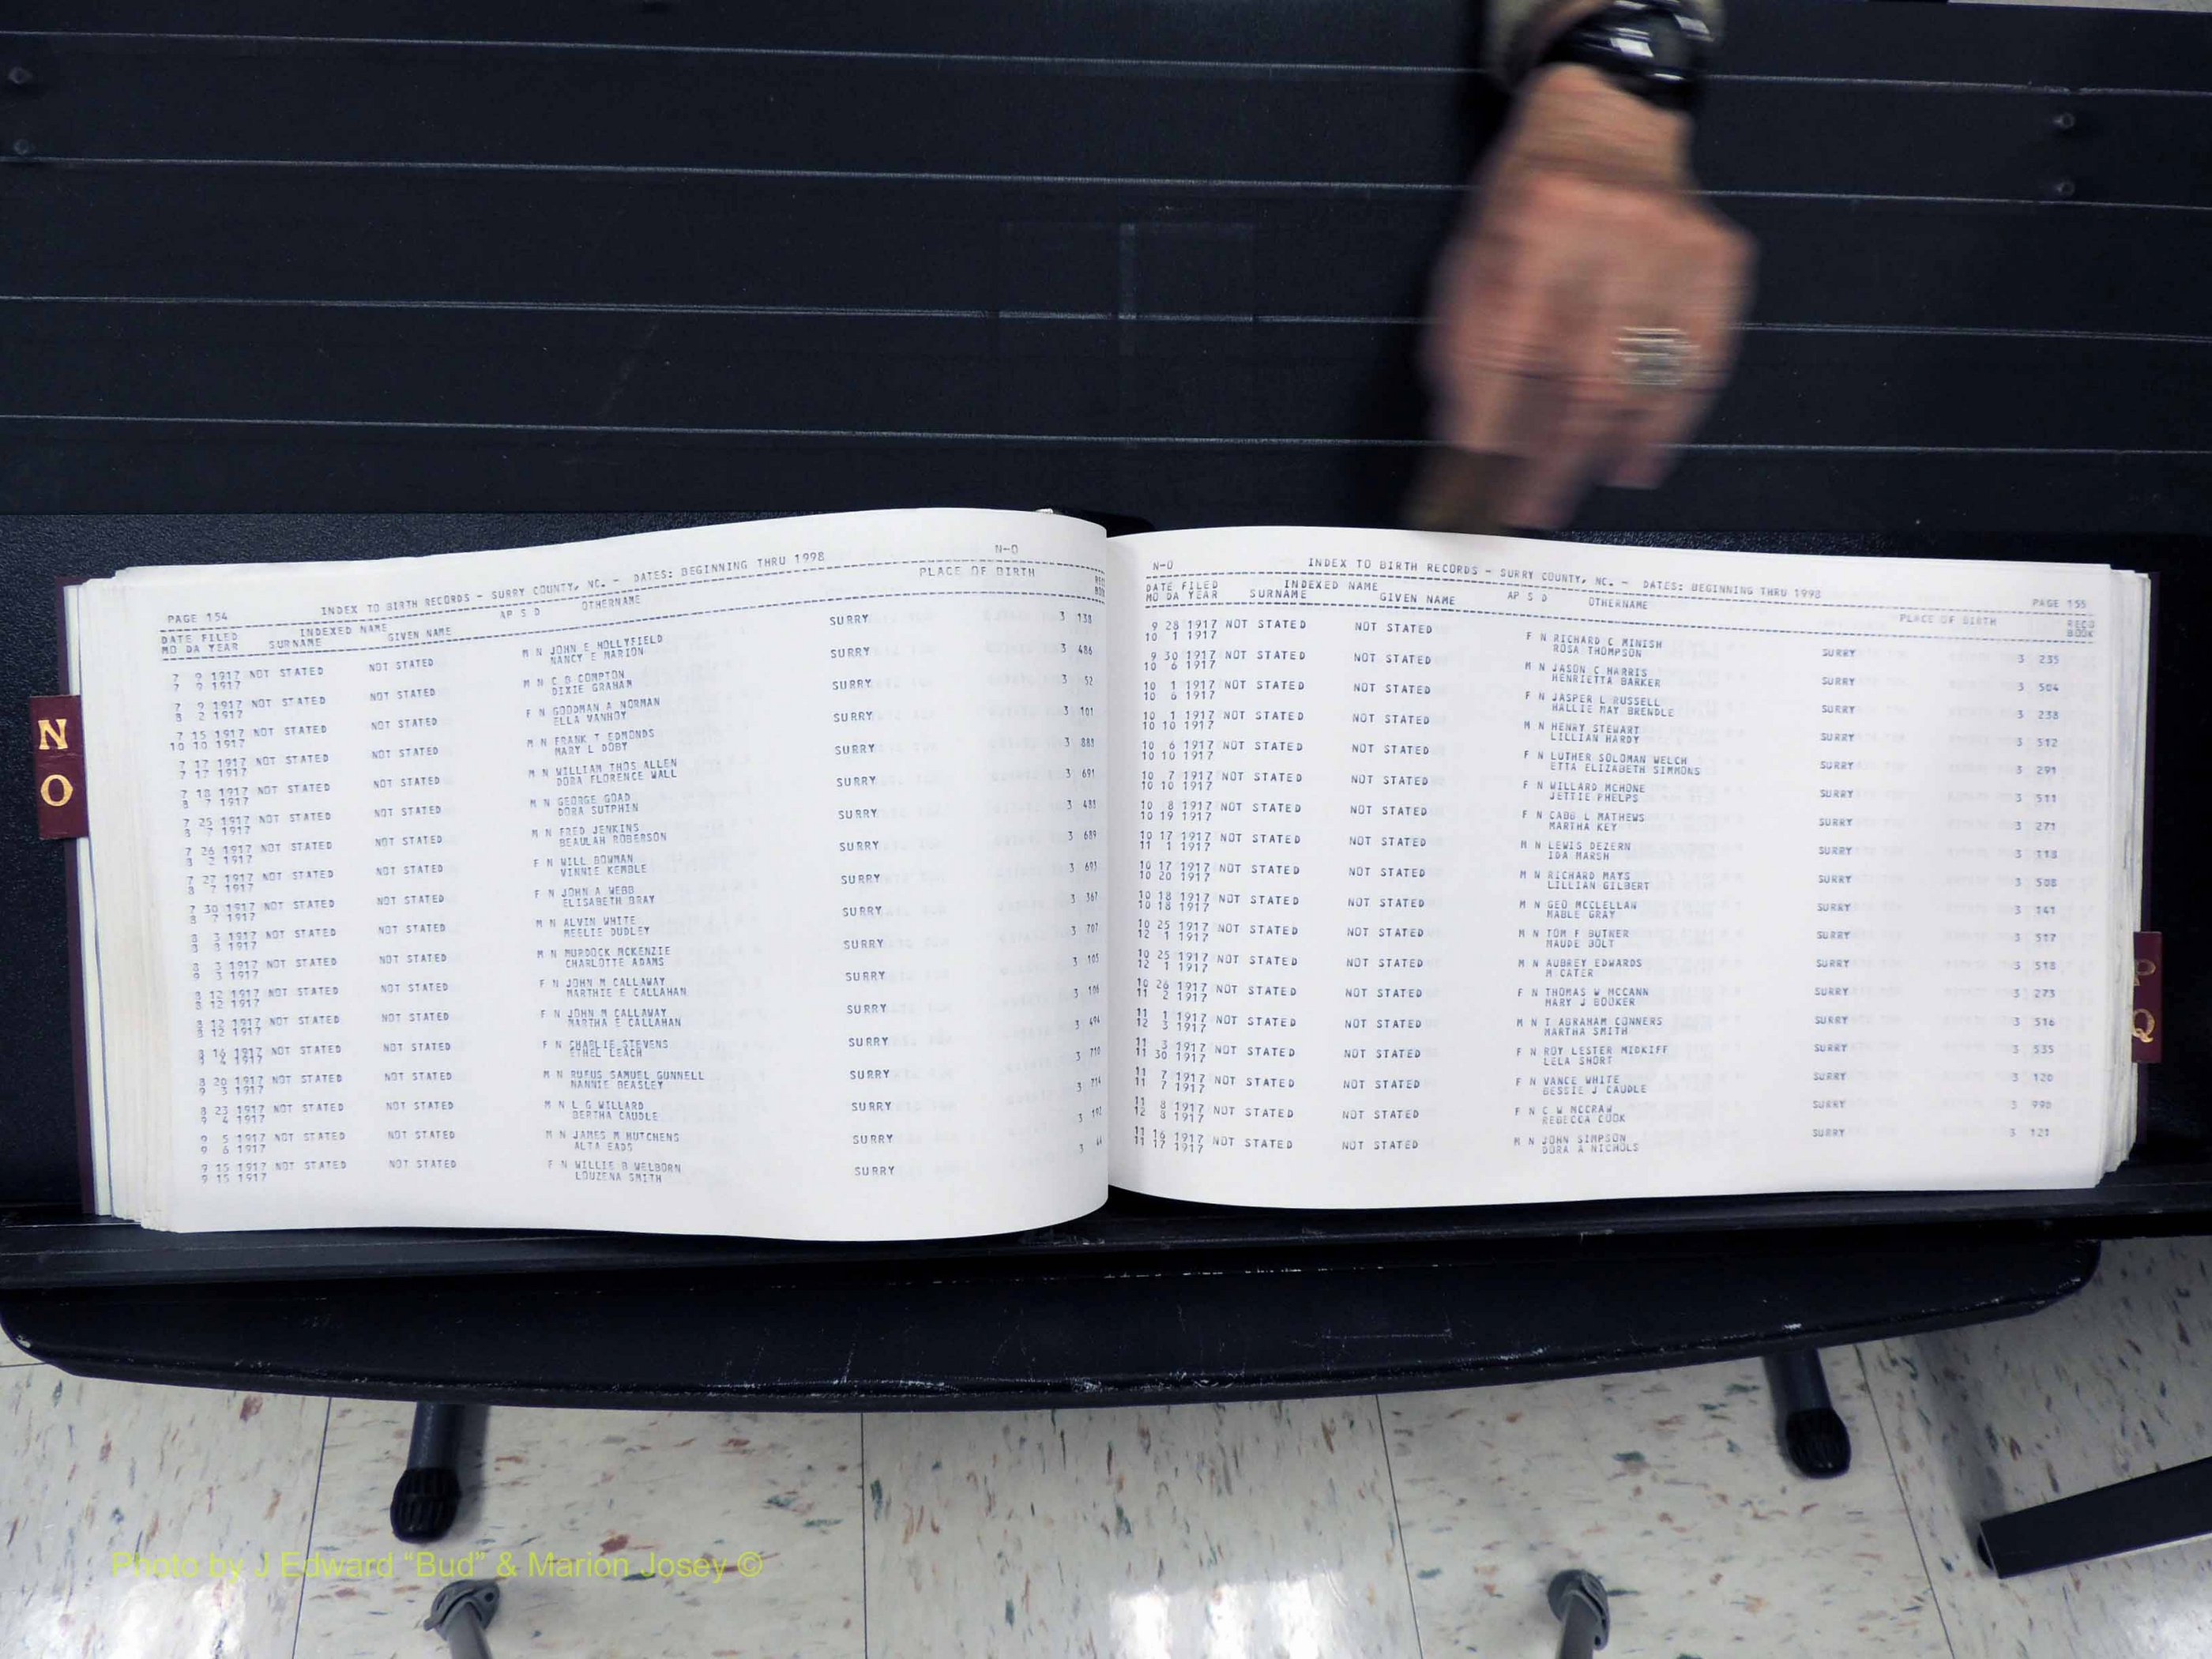 N
O
PAGE 154 INDEX TO BIRTH RECORDS - SURRY COUNTY, NC. - DATES: BEGINNING THRU 1998 N-O
DATE FILED INDEXED NAME AP S D OTHERNAME PLACE OF BIRTH
MO DA YEAR SURNAME GIVEN NAME
7 9 1917 NOT STATED NOT STATED M N JOHN E HOLLYFIELD SURRY 3 138
7 9 1917 NANCY E MARION
7 9 1917 NOT STATED NOT STATED M N C B COMPTON SURRY 3 486
8 2 1917 DIXIE GRAHAM
7 15 1917 NOT STATED NOT STATED F N GOODMAN A NORMAN SURRY 3 52
10 10 1917 ELLA VANHOY
7 17 1917 NOT STATED NOT STATED M N FRANK T EDMONDS SURRY 3 101
7 17 1917 MARY L DOBY
7 18 1917 NOT STATED NOT STATED M N WILLIAM THOS ALLEN SURRY 3
8 7 1917 DORA FLORENCE WALL
7 25 1917 NOT STATED NOT STATED M N GEORGE GOAD SURRY 3 691
8 7 1917 DORA SUTPHIN
7 26 1917 NOT STATED NOT STATED M N FRED JENKINS SURRY 3
8 2 1917 BEAULAH ROBERSON
7 27 1917 NOT STATED NOT STATED F N WILL BOWMAN SURRY 3 689
8 7 1917 VINNIE KEMBLE
7 30 1917 NOT STATED NOT STATED F N JOHN A WEBB SURRY 3 693
8 7 1917 ELISABETH BRAY
8 3 1917 NOT STATED NOT STATED M N ALVIN WHITE SURRY 3 367
8 3 1917 MEELIE DUDLEY
8 3 1917 NOT STATED NOT STATED M N MURDOCK MCKENZIE SURRY 3 707
9 3 1917 CHARLOTTE ADAMS
8 12 1917 NOT STATED NOT STATED F N JOHN M CALLAWAY SURRY 3 105
8 12 1917 MARTHIE E CALLAHAN
8 12 1917 NOT STATED NOT STATED F N JOHN M CALLAWAY SURRY 3 106
8 12 1917 MARTHA E CALLAHAN
8 16 1917 NOT STATED NOT STATED F N CHARLIE STEVENS SURRY 3 494
9 4 1917 ETHEL LEACH
8 20 1917 NOT STATED NOT STATED M N RUFUS SAMUEL GUNNELL SURRY 3 710
9 3 1917 NANNIE BEASLEY
8 23 1917 NOT STATED NOT STATED M N L G WILLARD SURRY 3 714
9 4 1917 BERTHA CAUDLE
9 5 1917 NOT STATED NOT STATED M N JAMES M HUTCHENS SURRY 3
9 6 1917 ALTA EADS
9 15 1917 NOT STATED NOT STATED F N WILLIE B WELBORN SURRY 3
9 15 1917 LOUZENA SMITH
N-O INDEX TO BIRTH RECORDS - SURRY COUNTY, NC. - DATES: BEGINNING THRU 1998 PAGE 155
DATE FILED INDEXED NAME AP S D OTHERNAME PLACE OF BIRTH RECO
MO DA YEAR SURNAME GIVEN NAME BOOK
9 28 1917 NOT STATED NOT STATED F N RICHARD C MINISH SURRY 3 235
10 1 1917 ROSA THOMPSON
9 30 1917 NOT STATED NOT STATED M N JASON C HARRIS SURRY 3 504
10 6 1917 HENRIETTA BARKER
10 1 1917 NOT STATED NOT STATED F N JASPER L RUSSELL SURRY 3 238
10 6 1917 HALLIE MAY BRENDLE
10 1 1917 NOT STATED NOT STATED M N HENRY STEWART SURRY 3 512
10 10 1917 LILLIAN HARDY
10 6 1917 NOT STATED NOT STATED F N LUTHER SOLOMAN WELCH SURRY 3 291
10 10 1917 ETTA ELIZABETH SIMMONS
10 7 1917 NOT STATED NOT STATED F N WILLARD MCHONE SURRY 3 511
10 10 1917 JETTIE PHELPS
10 8 1917 NOT STATED NOT STATED F N CABB L MATHEWS SURRY 3 271
10 19 1917 MARTHA KEY
10 17 1917 NOT STATED NOT STATED M N LEWIS DEZERN SURRY 3 118
11 1 1917 IDA MARSH
10 17 1917 NOT STATED NOT STATED M N RICHARD MAYS SURRY 3 508
10 20 1917 LILLIAN GILBERT
10 18 1917 NOT STATED NOT STATED M N GEO MCCLELLAN SURRY 3 141
10 18 1917 MABLE GRAY
10 25 1917 NOT STATED NOT STATED M N TOM F BUTNER SURRY 3 517
12 1 1917 MAUDE BOLT
10 25 1917 NOT STATED NOT STATED M N AUBREY EDWARDS SURRY 3 518
12 1 1917 M CATER
10 26 1917 NOT STATED NOT STATED F N THOMAS W MCCANN SURRY 3 273
11 2 1917 MARY J BOOKER
11 1 1917 NOT STATED NOT STATED M N I ABRAHAM CONNERS SURRY 3 516
12 3 1917 MARTHA SMITH
11 3 1917 NOT STATED NOT STATED F N ROY LESTER MIDKIFF SURRY 3 535
11 30 1917 LELA SHORT
11 7 1917 NOT STATED NOT STATED F N VANCE WHITE SURRY 3 120
11 7 1917 BESSIE J CAUDLE
11 8 1917 NOT STATED NOT STATED F N C W MCCRAW SURRY 3
12 8 1917 REBECCA COOK
11 16 1917 NOT STATED NOT STATED M N JOHN SIMPSON SURRY 3 121
11 17 1917 DORA A NICHOLS
P
Q
Photo by J Edward “Bud” & Marion Josey ©